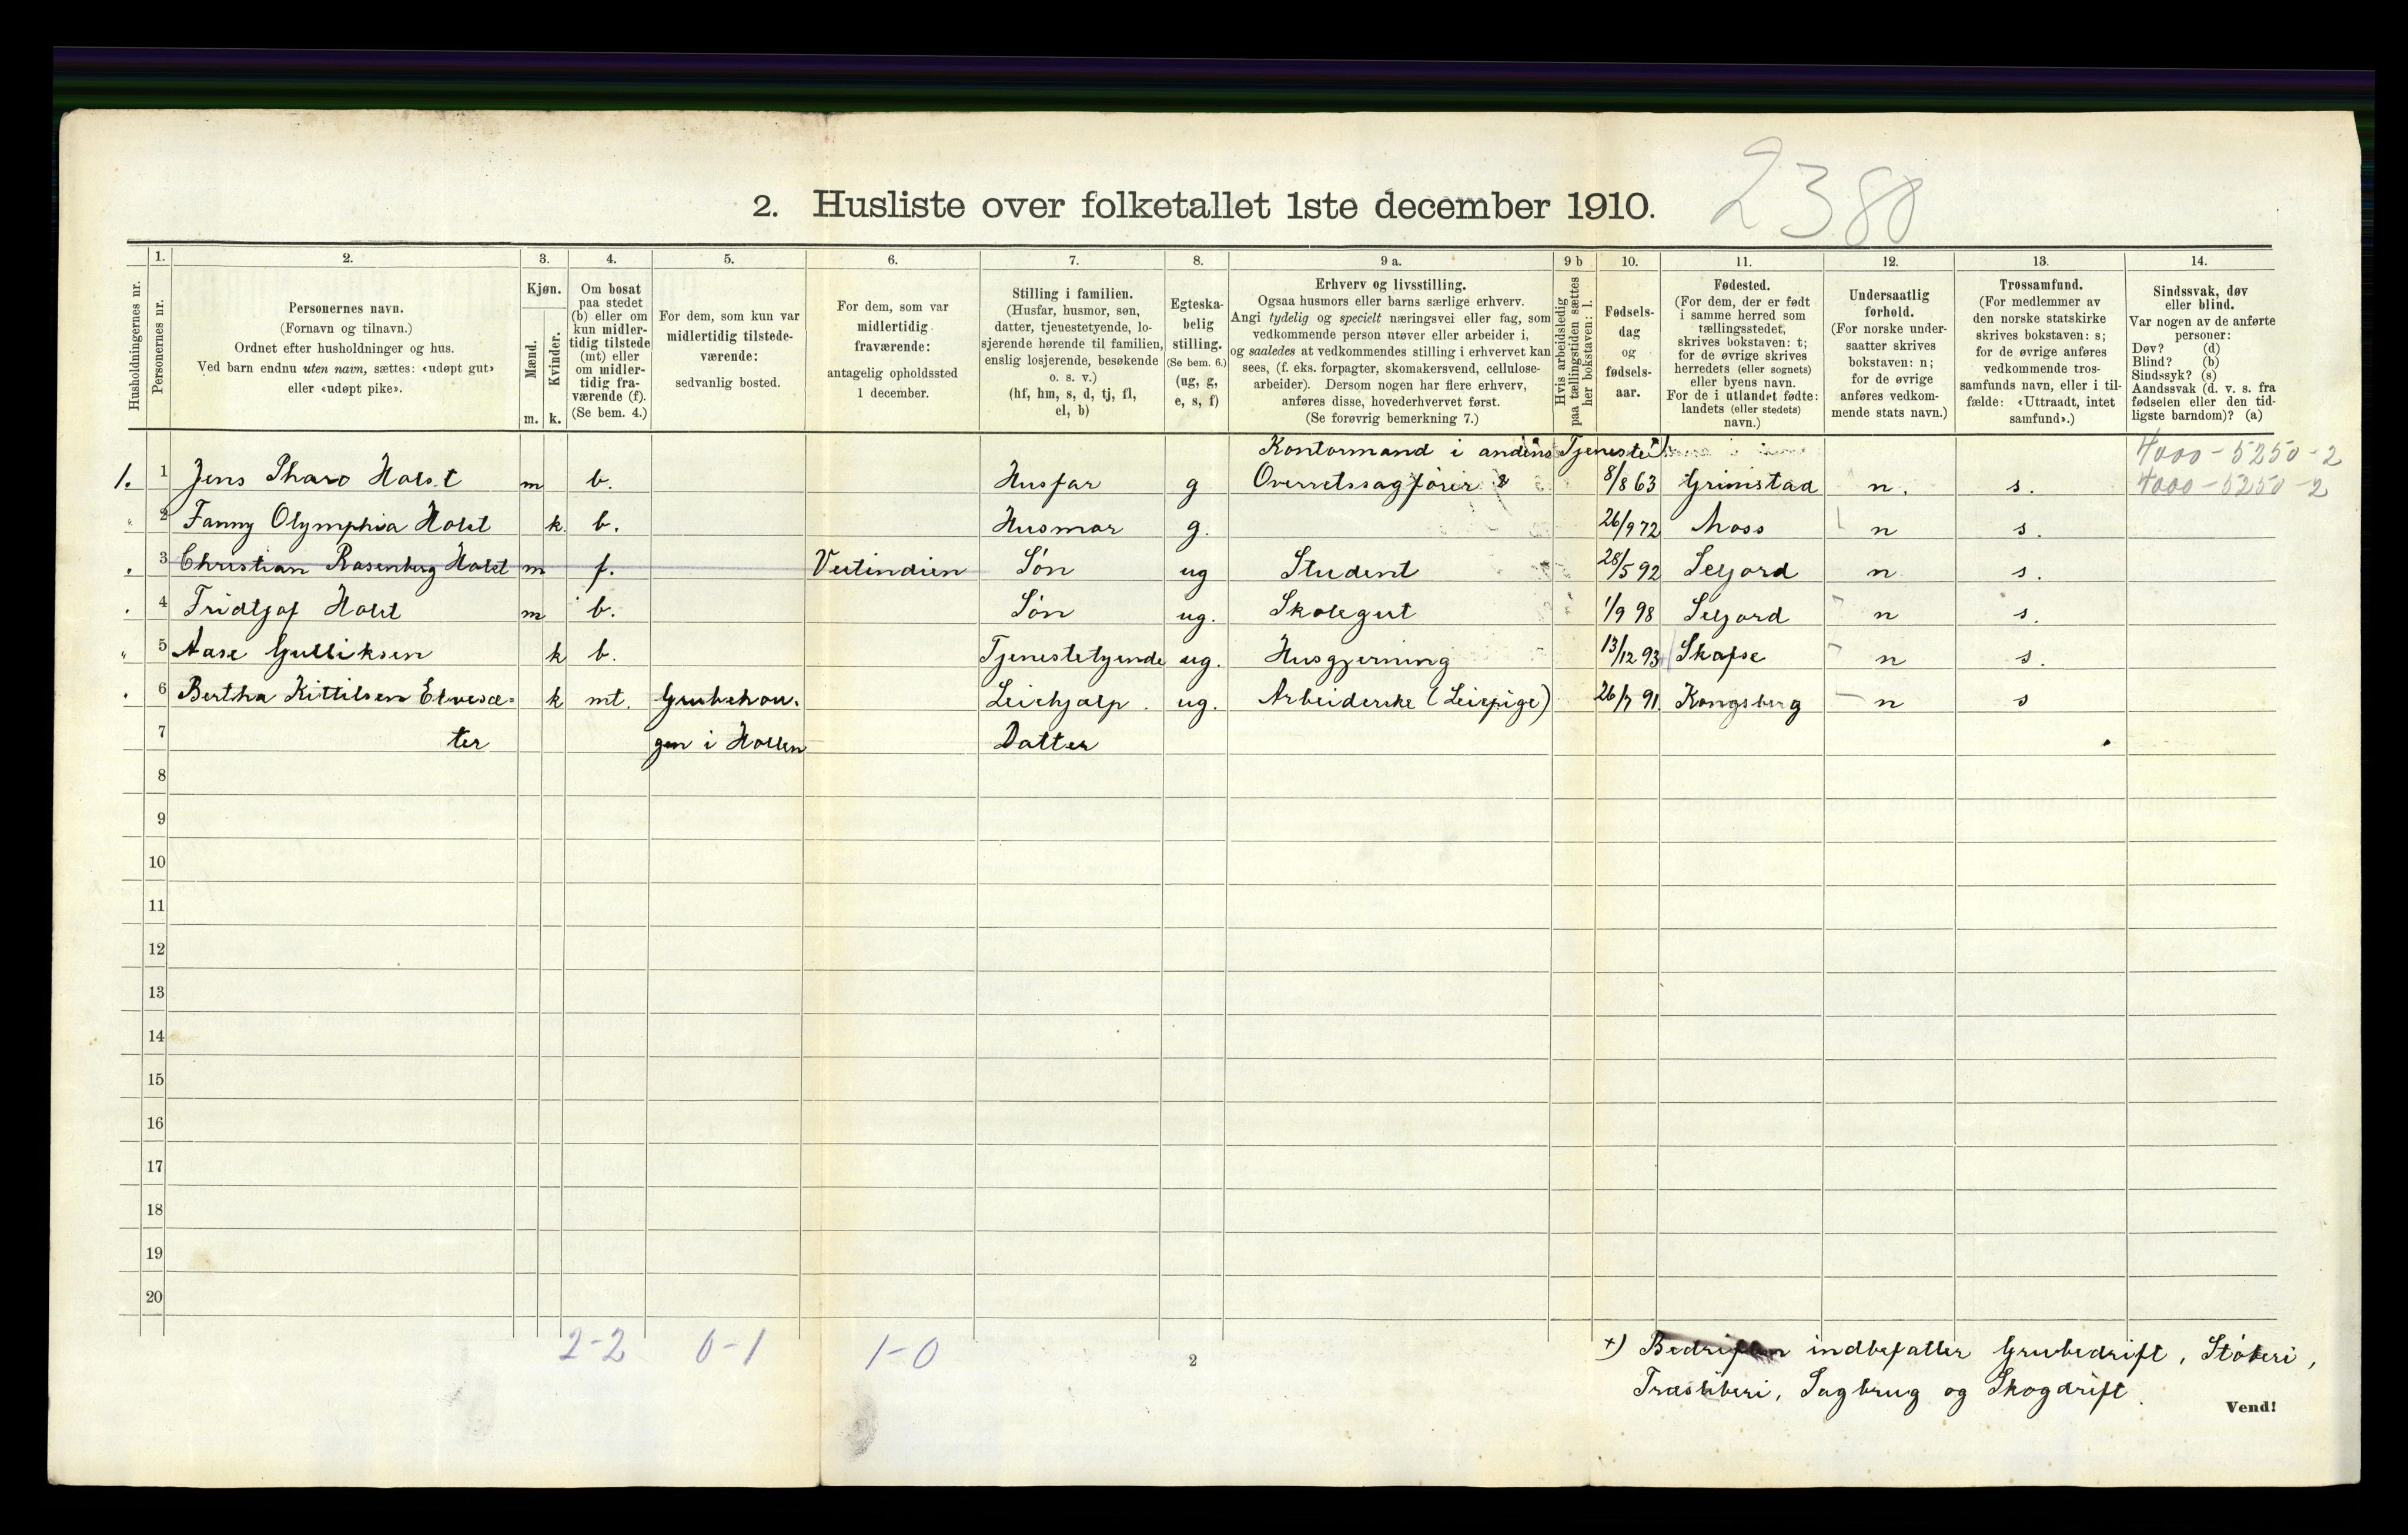 2380
2. Husliste over folketallet 1ste december 1910.
Husholdningernes nr.
1.
Personernes nr.
2.
Personernes navn.
(Fornavn og tilnavn.)
Ordnet efter husholdninger og hus.
Ved barn endnu uten navn, sættes: «udøpt gut»
eller «udøpt pike».
3.
Kjøn.
Mænd.
Kvinder.
m.
k.
4.
Om bosat
paa stedet
(b) eller om
kun midler-
tidig tilstede
(mt) eller
om midler-
tidig fra-
værende (f).
(Se bem. 4.)
5.
For dem, som kun var
midlertidig tilstede-
værende:
sedvanlig bosted.
6.
For dem, som var
midlertidig
fraværende:
antagelig opholdssted
1 december.
7.
Stilling i familien.
(Husfar, husmor, søn,
datter, tjenestetyende, lo-
sjerende hørende til familien,
enslig losjerende, besøkende
o. s. v.)
(hf, hm, s, d, tj, fl,
el, b)
8.
Egteska-
belig
stilling.
(Se bem. 6.)
(ug, g,
e, s, f)
9 a.
Erhverv og livsstilling.
Ogsaa husmors eller barns særlige erhverv.
Angi tydelig og specielt næringsvei eller fag, som
vedkommende person utøver eller arbeider i,
og saaledes at vedkommendes stilling i erhvervet kan
sees, (f. eks. forpagter, skomakersvend, cellulose-
arbeider). Dersom nogen har flere erhverv,
anføres disse, hovederhvervet først.
(Se forøvrig bemerkning 7.)
9 b
Hvis arbeidsledig
paa tællingstiden sættes
her bokstaven: l.
10.
Fødsels-
dag
og
fødsels-
aar.
11.
Fødested.
(For dem, der er født
i samme herred som
tællingsstedet,
skrives bokstaven: t;
for de øvrige skrives
herredets (eller sognets)
eller byens navn.
For de i utlandet fødte:
landets (eller stedets)
navn.)
12.
Undersaatlig
forhold.
(For norske under-
saatter skrives
bokstaven: n;
for de øvrige
anføres vedkom-
mende stats navn.)
13.
Trossamfund.
(For medlemmer av
den norske statskirke
skrives bokstaven: s;
for de øvrige anføres
vedkommende tros-
samfunds navn, eller i til-
fælde: «Uttraadt, intet
samfund».)
14.
Sindssvak, døv
eller blind.
Var nogen av de anførte
personer:
Døv? (d)
Blind? (b)
Sindssyk? (s)
Aandssvak (d. v. s. fra
fødselen eller den tid-
ligste barndom)? (a)
Kontormand i andens Tjeneste 4000-5250-2
1. 1 Jens Tharo Holst m b. Husfar g Overretssagfører 8/8 63 Grimstad n. s. 4000-5250-2
" 2 Fanny Olymphia Holst k. b. Husmor g. 26/9 72 Moss n s.
. 3 Christian Rosenberg Holst m f. Vestindien Søn ug Student 28/5 92 Seljord n s.
. 4 Fridtjof Holst m b. Søn ug. Skolegut 1/9 98 Seljord n s.
" 5 Aase Gulliksen k b. Tjenestetyende ug. Husgjerning 13/12 93 Skafse n s.
. 6 Bertha Kittilsen Elvesæ= k mt. Grubehau- Leiehjælp. ug. Arbeiderske (Leiepige) 26/7 91. Kongsberg n s
7 ter gen i Hollen Datter
8
9
10
11
12
13
14
15
16
17
18
19
20
2-2 0-1 1-0
2
+) Bedriften indbefatter Grubedrift, Støberi,
Træsliberi, Sagbrug og Skogdrift.
Vend!